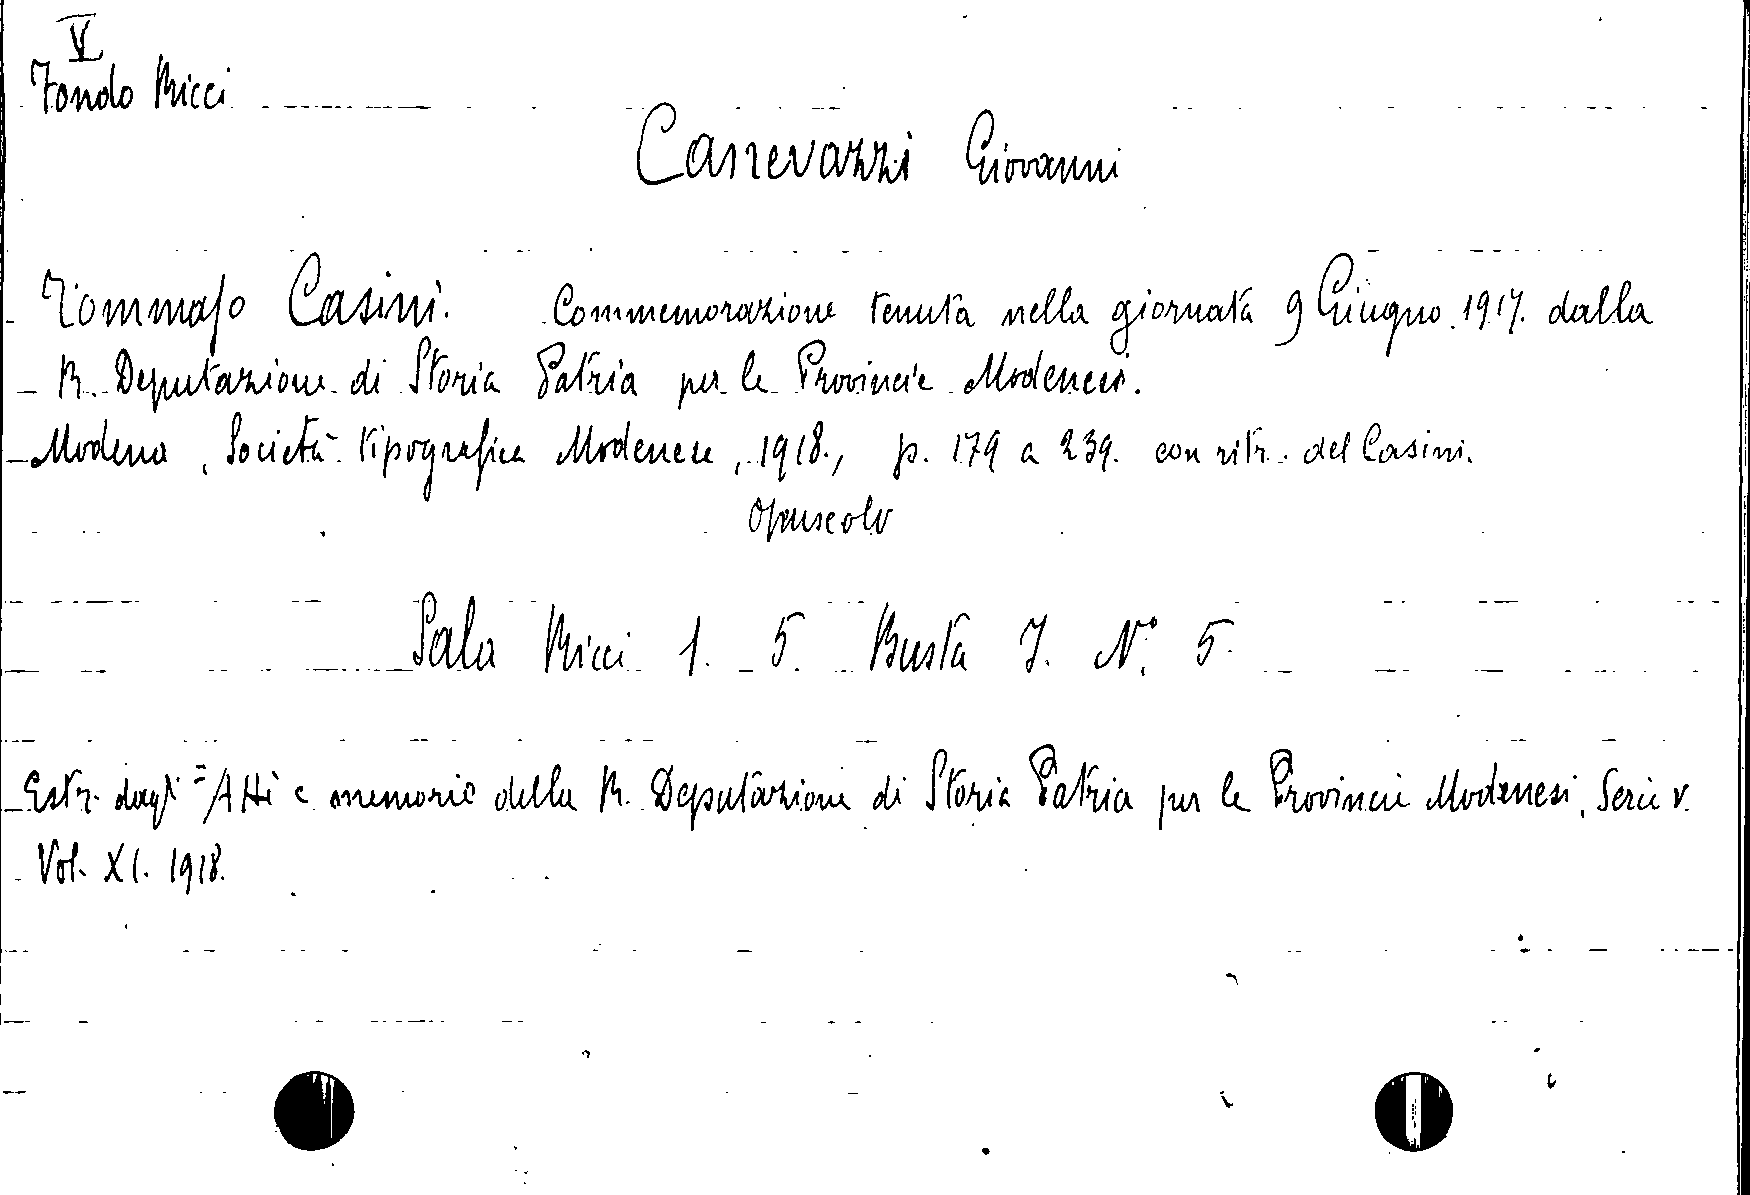 V
Fondo Ricci
Canevazzi Giovanni
Tommaso Casini. Commemorazione tenuta nella giornata 9 Giugno 1917. dalla
R. Deputazione di Storia Patria per le Provincie Modenesi.
Modena, Società tipografica Modenese, 1918., p. 179 a 239. con ritr. del Casini.
Opuscolo
Sala Ricci 1. 5. Busta I. N.° 5.
Estr. dagli "Atti e memorie della R. Deputazione di Storia Patria per le Provincie Modenesi, Serie V.
Vol. XI. 1918.